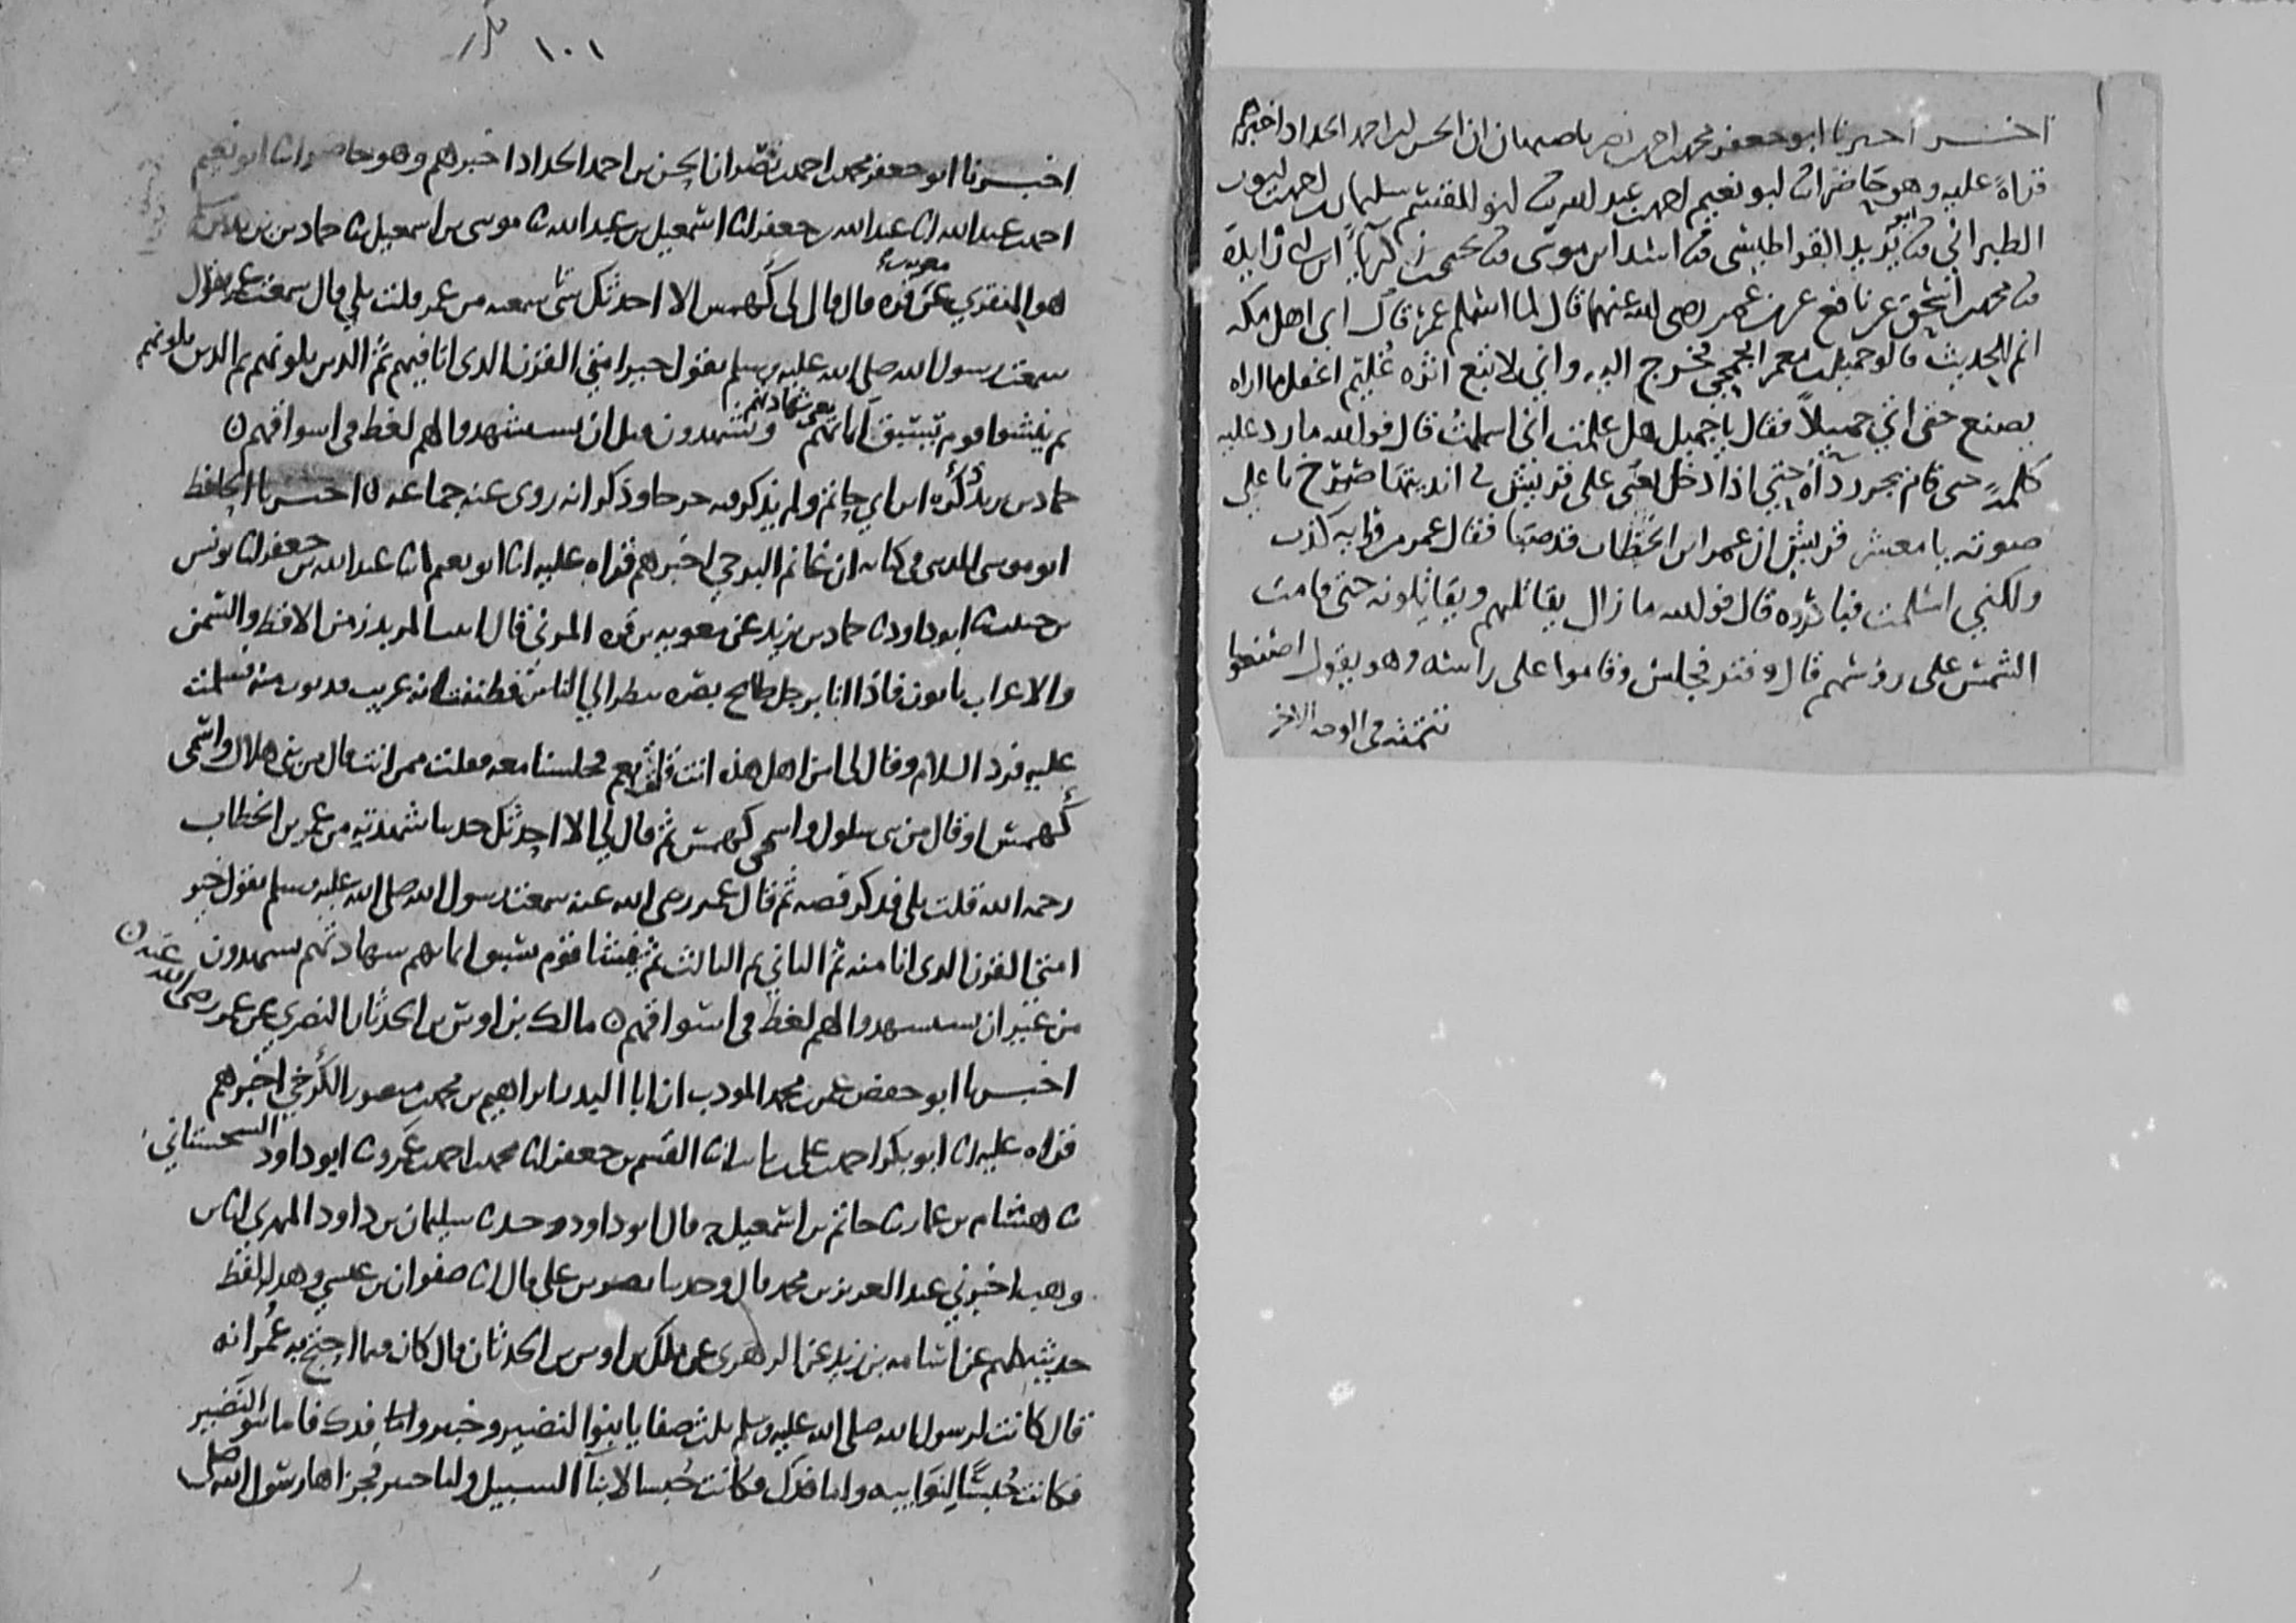 اخبر اخبرنا ابو جعفر محمد بن احمد بن نصر باصبهان ان الحسن بن احمد الحداد اخبرهم
قراة عليه وهو حاضر انا ابو نعيم احمد بن عبد الله نا ابو القسم سليمان بن احمد بن ايوب
الطبراني نا ابو يزيد القراطيسي نا اسد ابن موسى نا يحيى بن زكريا ابن ابي زايدة
نا محمد بن اسحق عن نافع عن بن عمر رضي الله عنهما قال لما اسلم عمر قال اي اهل مكه
انم للحديث قالو جميل بن معمر الجمحي فخرج اليه واني لاتبع اثره غليم اعقل ما اراه
يصنع حتى اتى جميلا فقال يا جميل هل علمت اني اسلمت قال فوالله ما رد عليه
كلمة حتى قام يجر رداه حتى اذا دخل على قريش في انديتها صرخ باعلى
صوته يا معشر قريش ان عمر ابن الخطاب قد صبا فقال عمر من ورايه كذب
ولكني اسلمت فباشروه قال فوالله ما زال يقاتلهم ويقاتلونه حتى قامت
الشمس على رؤسهم قال وفتر فجلس وقاموا على راسه وهو يقول اصنعوا
تتمته في الوجه الاخر
١٠١
اخبرنا ابو جعفر محمد بن احمد بن نصر ان الحسن بن احمد الحداد اخبرهم وهو حاضر انا ابو نعيم
احمد بن عبد الله انا عبد الله بن جعفر انا اسمعيل بن عبد الله نا موسى بن اسمعيل نا حماد بن
هو المنقري عن معوية بن قره قال قال لي كهمس الا احدثك شي سمعته من عمر قلت بلى قال سمعت عمر يقول
سمعت رسول الله صلى الله عليه وسلم يقول خير امتي القرن الذي انا فيهم ثم الذين يلونهم ثم الذين يلونهم
ثم ينشوا قوم تسبق ايمانهم شهادتهم ويشهدون قبل ان يستشهدوا لهم لغط في اسواقهم ن
حماد بن يزيد ذكره ابن ابي حاتم ولم يذكر فيه جرحا وذكر انه روى عنه جماعه ن اخبرنا الحافظ
ابو موسى المديني في كتابه ان غانم البرجي اخبرهم قراه عليه انا ابو نعيم انا عبد الله بن جعفر انا يونس
بن حبيب نا ابو داود نا حماد بن يزيد عن معويه بن قره المزني قال المربد زمن الاقط والسمن
والاعراب ياتون فاذا انا برجل طامح بصره ينظر الى الناس فظننت انه غريب فدنوت منه فسلمت
عليه فرد السلام وقال لي امن اهل هذه انت قلت نعم فجلسنا معه فقلت ممن انت قال من بني هلال واسمي
كهمس او قال من بني سلول واسمي كهمس ثم قال لي الا احدثك حديثا شهدته من عمر بن الخطاب
رحمه الله قلت بلى فذكر قصه ثم قال عمر رضي الله عنه سمعت رسول الله صلى الله عليه وسلم يقول خير
امتي القرن الذي انا منه ثم الثاني ثم الثالث ثم ينشا قوم تسبق ايمانهم شهادتهم يشهدون
من غير ان يستشهدوا لهم لغط في اسواقهم ن مالك بن اوس بن الحدثان النصري عن عمر رضي الله عنه ن
اخبرنا ابو حفص عمر بن محمد المودب ان ابا البدر ابراهيم بن محمد بن منصور الكرخي اخبرهم
قراه عليه انا ابو بكر احمد بن علي بن ثابت انا القسم بن جعفر انا محمد بن احمد بن عمرو نا ابو داود السجستاني
نا هشام بن عمار نا حاتم بن اسمعيل ح قال ابو داود وحدثنا سليمان بن داود المهري انا ابن
وهب اخبرني عبد العزيز بن محمد قال وحدثنا نصر بن علي قال انا صفوان بن عيسى وهذا لفظ
حديثه كلهم عن اسامه بن زيد عن الزهري عن ملك بن اوس بن الحدثان قال كان فيما احتج به عمر انه
قال كانت لرسول الله صلى الله عليه وسلم ثلث صفايا بنوا النضير وخيبر وفدك فاما بنو النضير
فكانت حبسا لنوايبه واما فدك فكانت حبسا لابنآ السبيل واما خيبر فجزاها رسول الله صلى